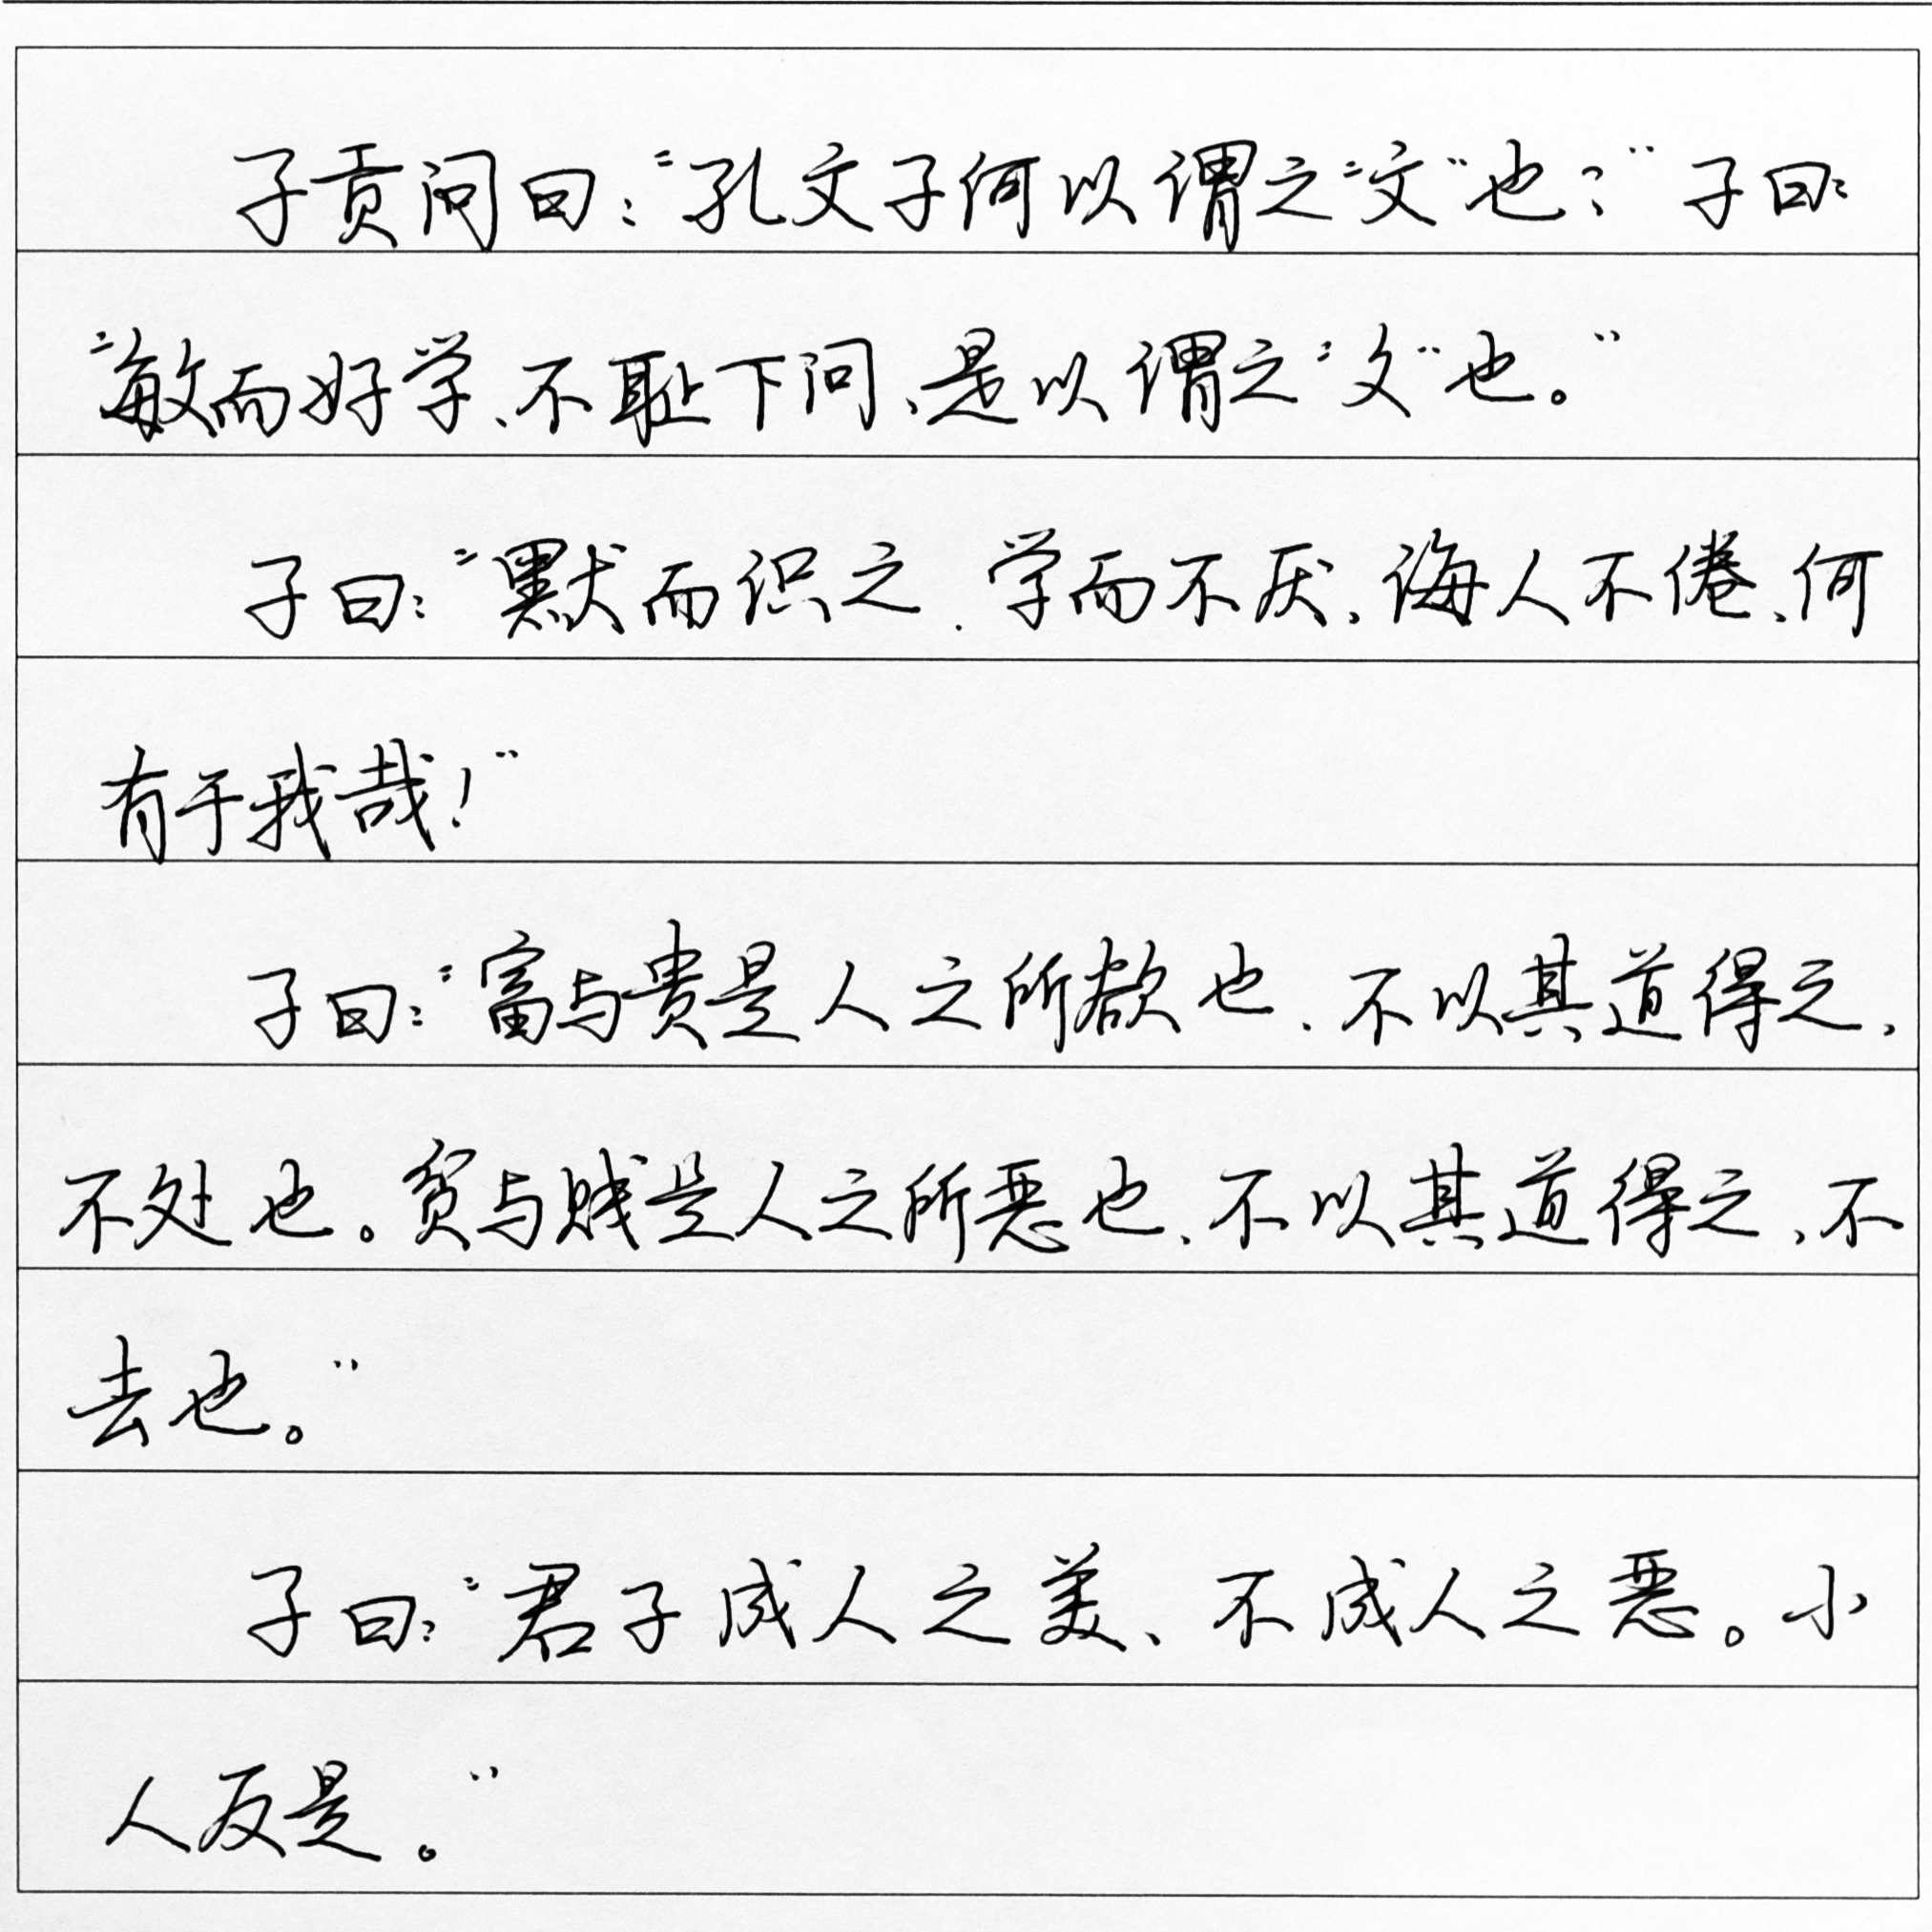 子贡问曰：“孔文子何以谓之“文”也？”子曰：
“敏而好学、不耻下问、是以谓之“文”也。”
子曰：“默而识之．学而不厌、诲人不倦、何
有于我哉！”
子曰：“富与贵是人之所欲也、不以其道得之、
不处也。贫与贱是人之所恶也、不以其道得之、不
去也。”
子曰：“君子成人之美、不成人之恶。小
人反是。”